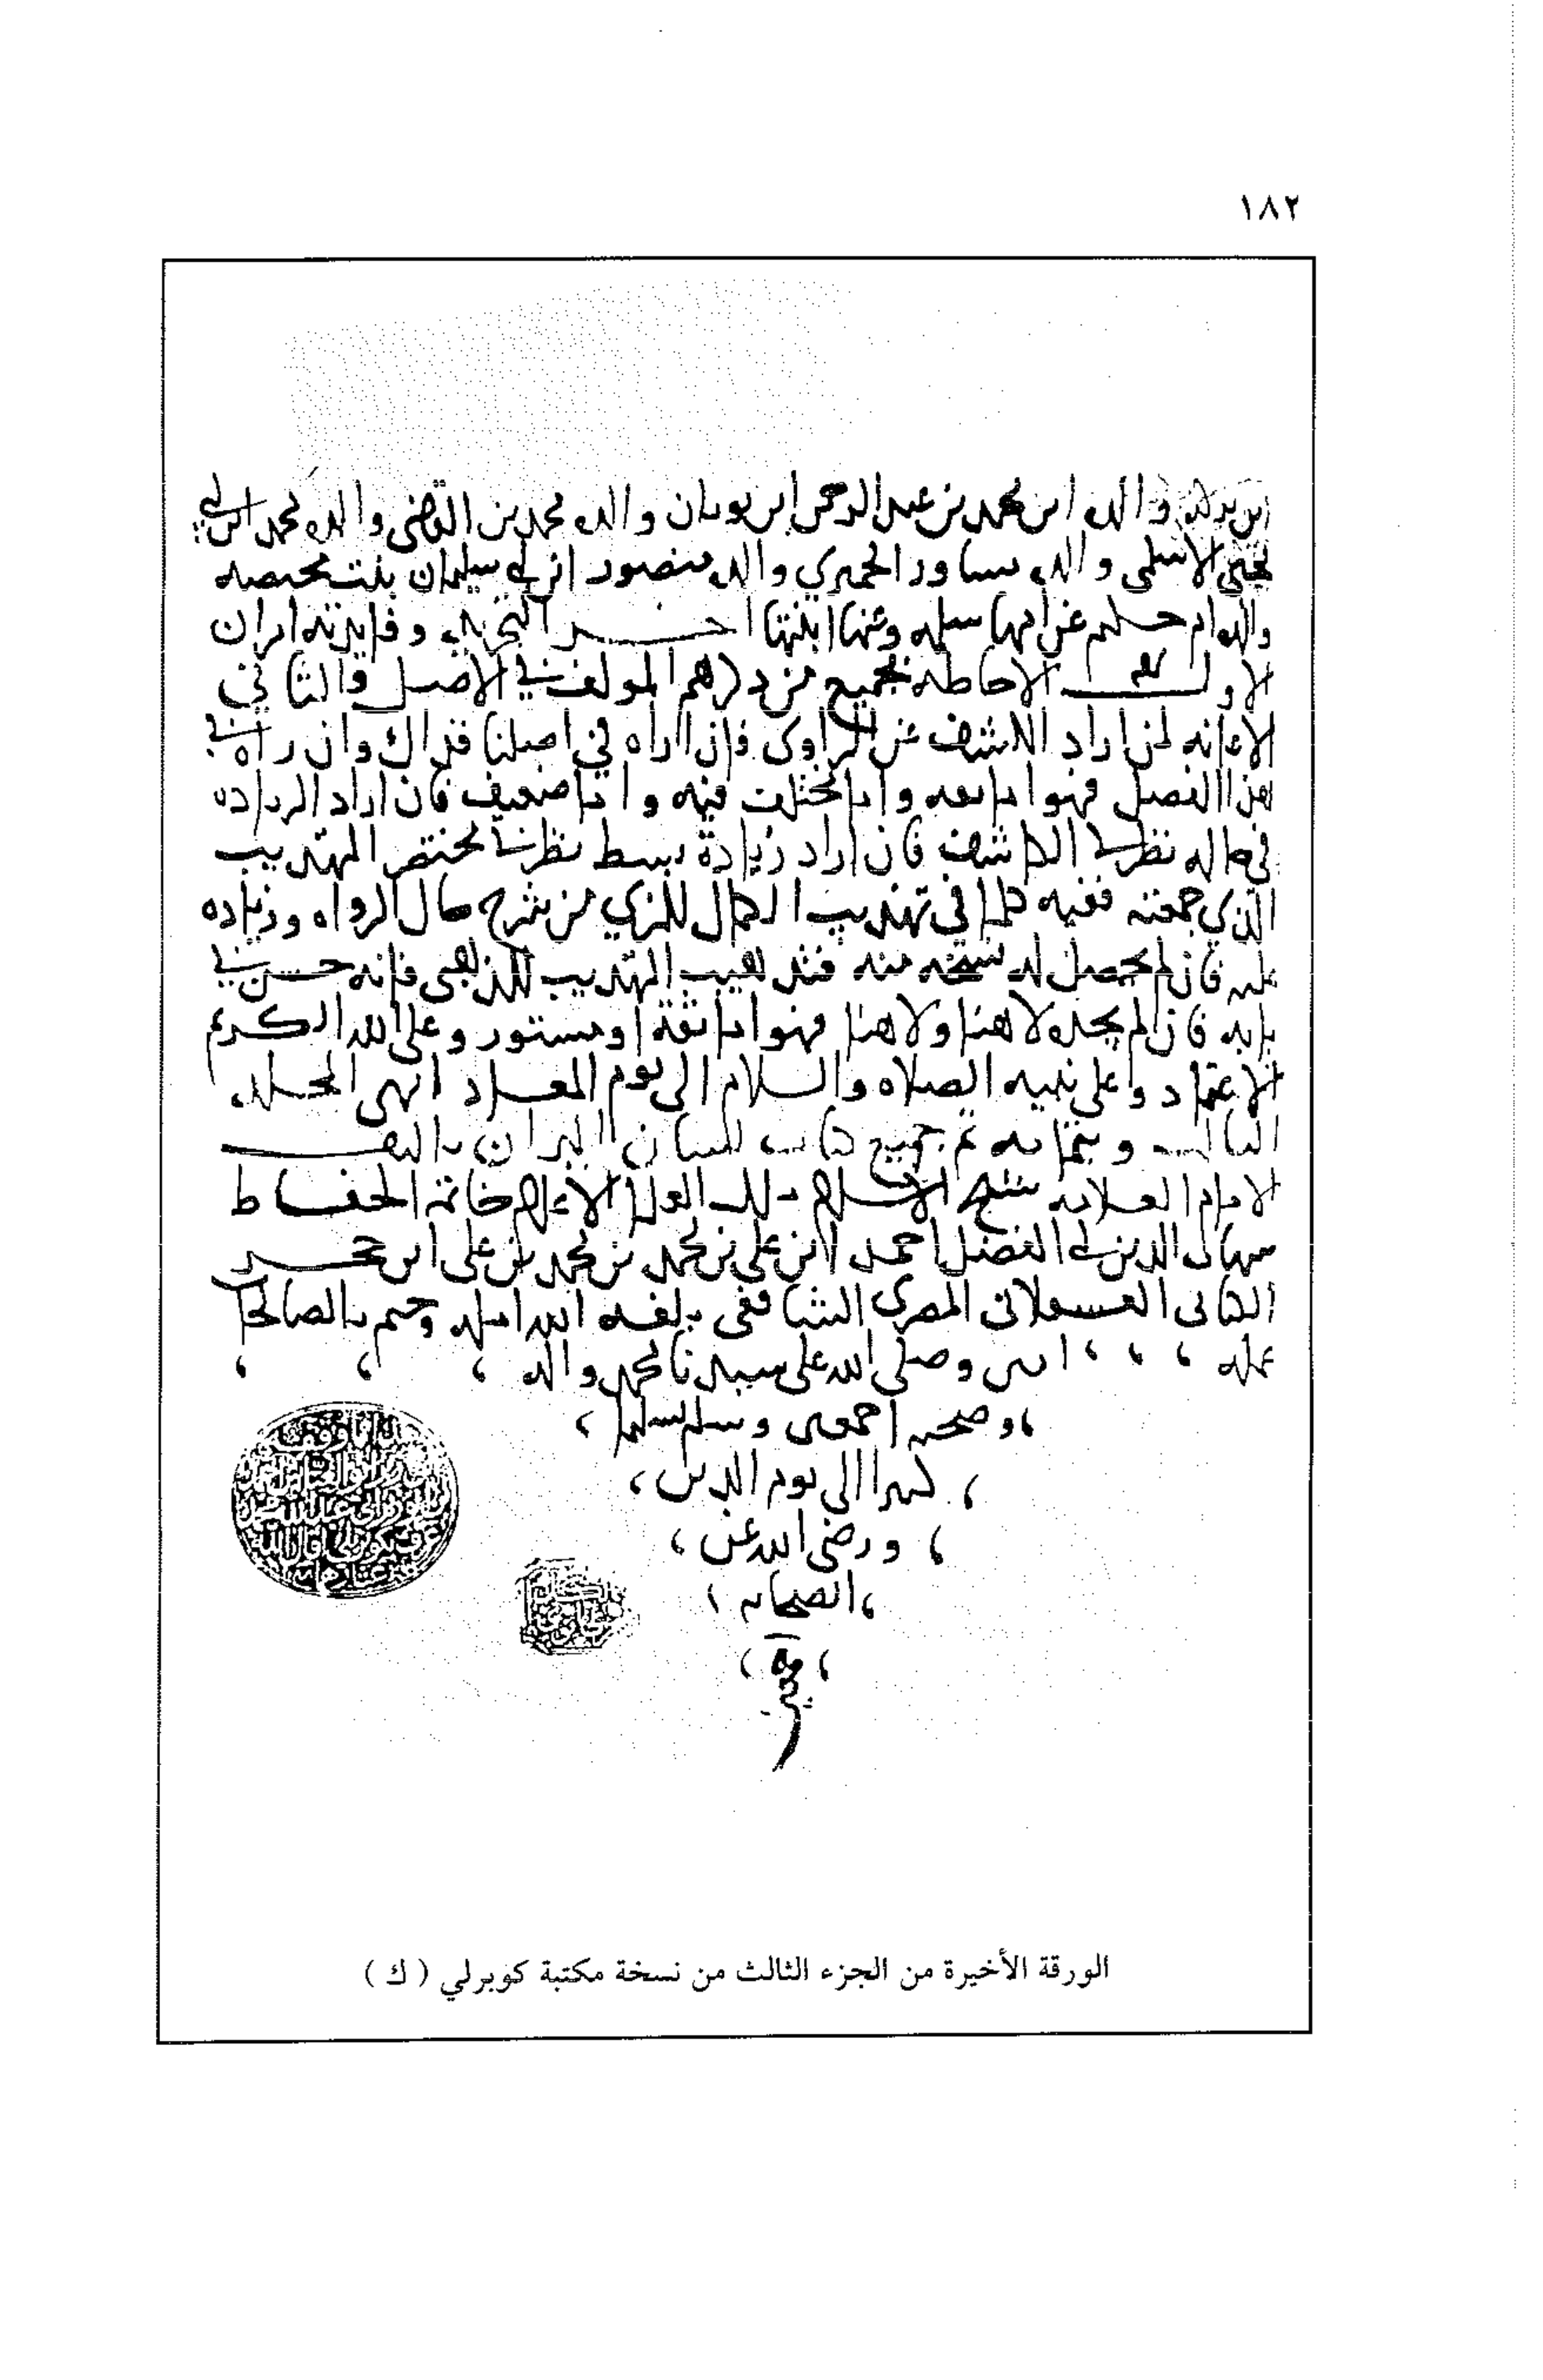 ١٨٢
والدة ابن محمد بن عبد الرحمن ابن ثوبان والدة محمد بن والدة محمد ابن ابي
يحيى الاسلمي والدة مساور الحميري والدة منصور ابن ابي سليمان بنت محيصه
والدة ام حكيم عن امها ام سلمه وعنها ابنتها اخـر التجريد وفايدته امران
الاول الاحاطه بجميع من ذكرهم المولف في الاصل والثاني
الاعانه لمن اراد الكشف عن الراوى فان راه في اصلنا فذاك وان راه في
هذا الفصل فهو اما ثقه واما مختلف فيه واما ضعيف فان اراد الزياده
في حاله نظر في الكاشف فان اراد زيادة بسط نظر في مختصر التهذيب
الذي جمعته ففيه كلما في تهذيب الكمال للمزي من شرح حال الرواه وزياده
عليه فان لم يحصل له نسخه منه فتذهيب التهذيب للذهبى فانه حسن في
بابه فان لم يجده لا هنا ولا هنا فهو اما ثقة او مستور وعلى الله الكريم
الاعتماد وعلى نبيه الصلاه والسلام الى يوم المعاد انهى المجلد
الثالث وبتمامه تم جميع كتاب لسان الميزان تاليف
الامام العلامه شيخ الاسلام ملك العلما الاعلام خاتمة الحفاظ
شهاب الدين ابي الفضل احمد ابن علي بن محمد بن محمد بن على ابن حجر
الكنانى العسقلانى المصرى الشافعى بلغه الله امله وختم بالصالحات
عمله امين وصلى الله على سيدنا محمد واله
وصحبه اجمعين وسلم تسليما
كثيرا الى يوم الدين
ورضى الله عن
الصحابه
الورقة الأخيرة من الجزء الثالث من نسخة مكتبة كوبرلي ( ك )